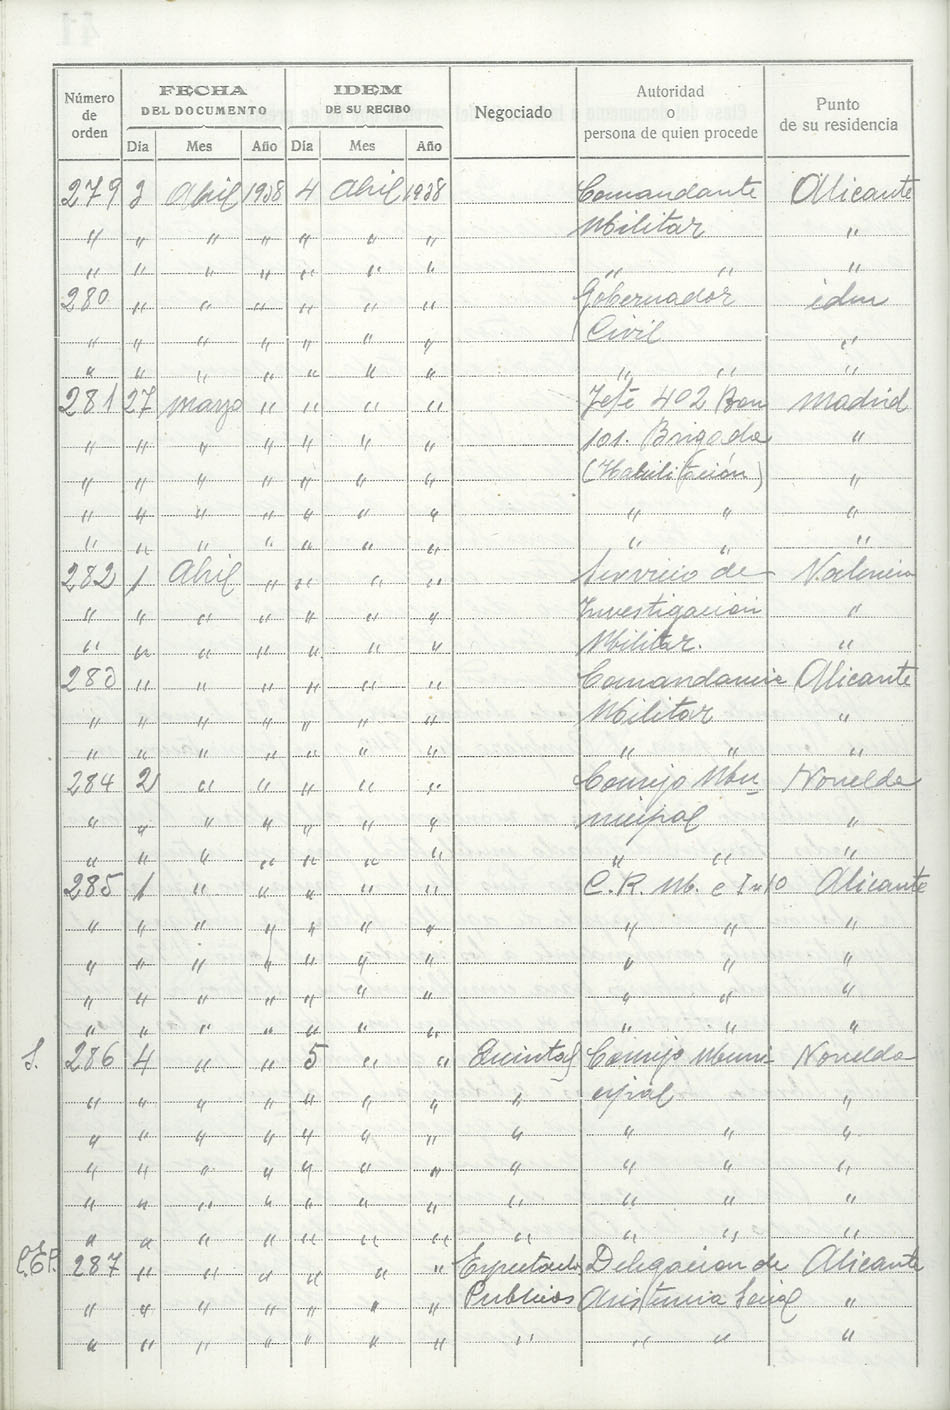 Número de orden | FECHA DEL DOCUMENTO | IDEM DE SU RECIBO | Negociado | Autoridad o persona de quien procede | Punto de su residencia
Día | Mes | Año | Día | Mes | Año
279 3 Abril 1938 4 Abril 1938 Comandante Alicante
" " " " " " " Militar "
" " " " " " " " " "
280 " " " " " " Gobernador idm
" " " " " " " Civil "
" " " " " " " " " "
281 27 marzo " " " " Jefe 402 Bon Madrid
" " " " " " " 101. Brigada "
" " " " " " " (Habilitación) "
" " " " " " " " " "
" " " " " " " " " "
282 1 Abril " " " " Servicio de Valencia
" " " " " " " Investigación "
" " " " " " " Militar. "
283 " " " " " " Comandancia Alicante
" " " " " " " Militar "
" " " " " " " " " "
284 2 " " " " " Consejo Mu- Novelda
" " " " " " " nicipal "
" " " " " " " " " "
285 1 " " " " " C. R. M. e Alicante
" " " " " " " " " "
" " " " " " " " " "
" " " " " " " " " "
" " " " " " " " " "
S. 286 4 " " 5 " " Quintas Consejo Muni Novelda
" " " " " " " " cipal "
" " " " " " " " " " "
" " " " " " " " " " "
" " " " " " " " " " "
" " " " " " " " " " "
287 " " " " " " Espectaculos Delegacion de Alicante
" " " " " " " Publicos Asistencia Social "
" " " " " " " " " " "